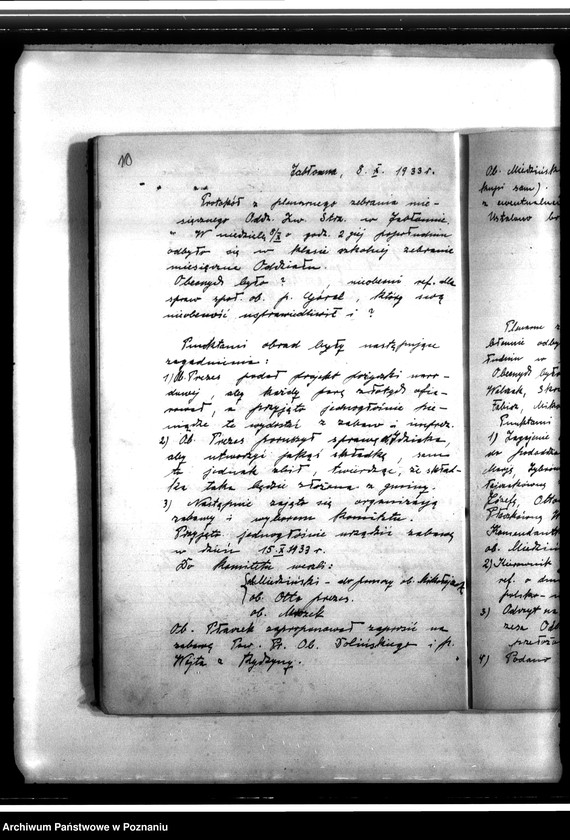 10
Jabłonna, 8. X. 1933 r.
Protokół z plenarnego zebrania mie-
sięcznego Oddz. Zw. Strz. w Jabłonnie.
W niedzielę 8/X o godz. 2 giej popołudniu
odbyło się w klasie szkolnej zebranie
miesięczne Oddziału.
Obecnych było ? , nieobecni ref. dla
spraw społ. ob. p. Góral, który swą
nieobecność usprawiedliwił i ?
Punktami obrad były następujące
zagadnienia:
1) Ob. Prezes podał projekt pożyczki naro-
dowej, aby każdy parę złotych ofia-
rował, a przyjęto jednogłośnie pie-
niądze te wydostać z zabaw i imprez.
2) Ob. Prezes poruszył sprawę
aby utworzyć jakąś składkę, sam
to jednak zbił, twierdząc, że skład-
ka taka będzie złożona z gminy.
3) Następnie zajęto się organizacją
zabawy i wyborem Komitetu.
Przyjęto jednogłośnie urządzić zabawę
w dzień 15.X.1933 r.
Do Komitetu weszli:
ob. Miedziński - do pomocy ob. Mikołajczak
ob. Otto prezes.
ob.
Ob. Ptaszek zaproponował zaprosić na
zabawę Pow. Pr. Ob. Dolińskiego i p.
Wójta z Rydzyny.
Ob. Miedzińsk
kupi sam).
z ewentualni
Ustalono
Plenarne z
błonnie odby
łudniu w
Obecnych było
Walczak,
Fabisz, Miko
Punktami
1) Zagajenie
do porządku
Józefa, Otto
Ptaszkówna
Komendant
ob. Miedziń
2) Kierownik
ref. o
polsko-
3) Odczyt na
zesa Odd
przełoż
4) Podano
Archiwum Państwowe w Poznaniu